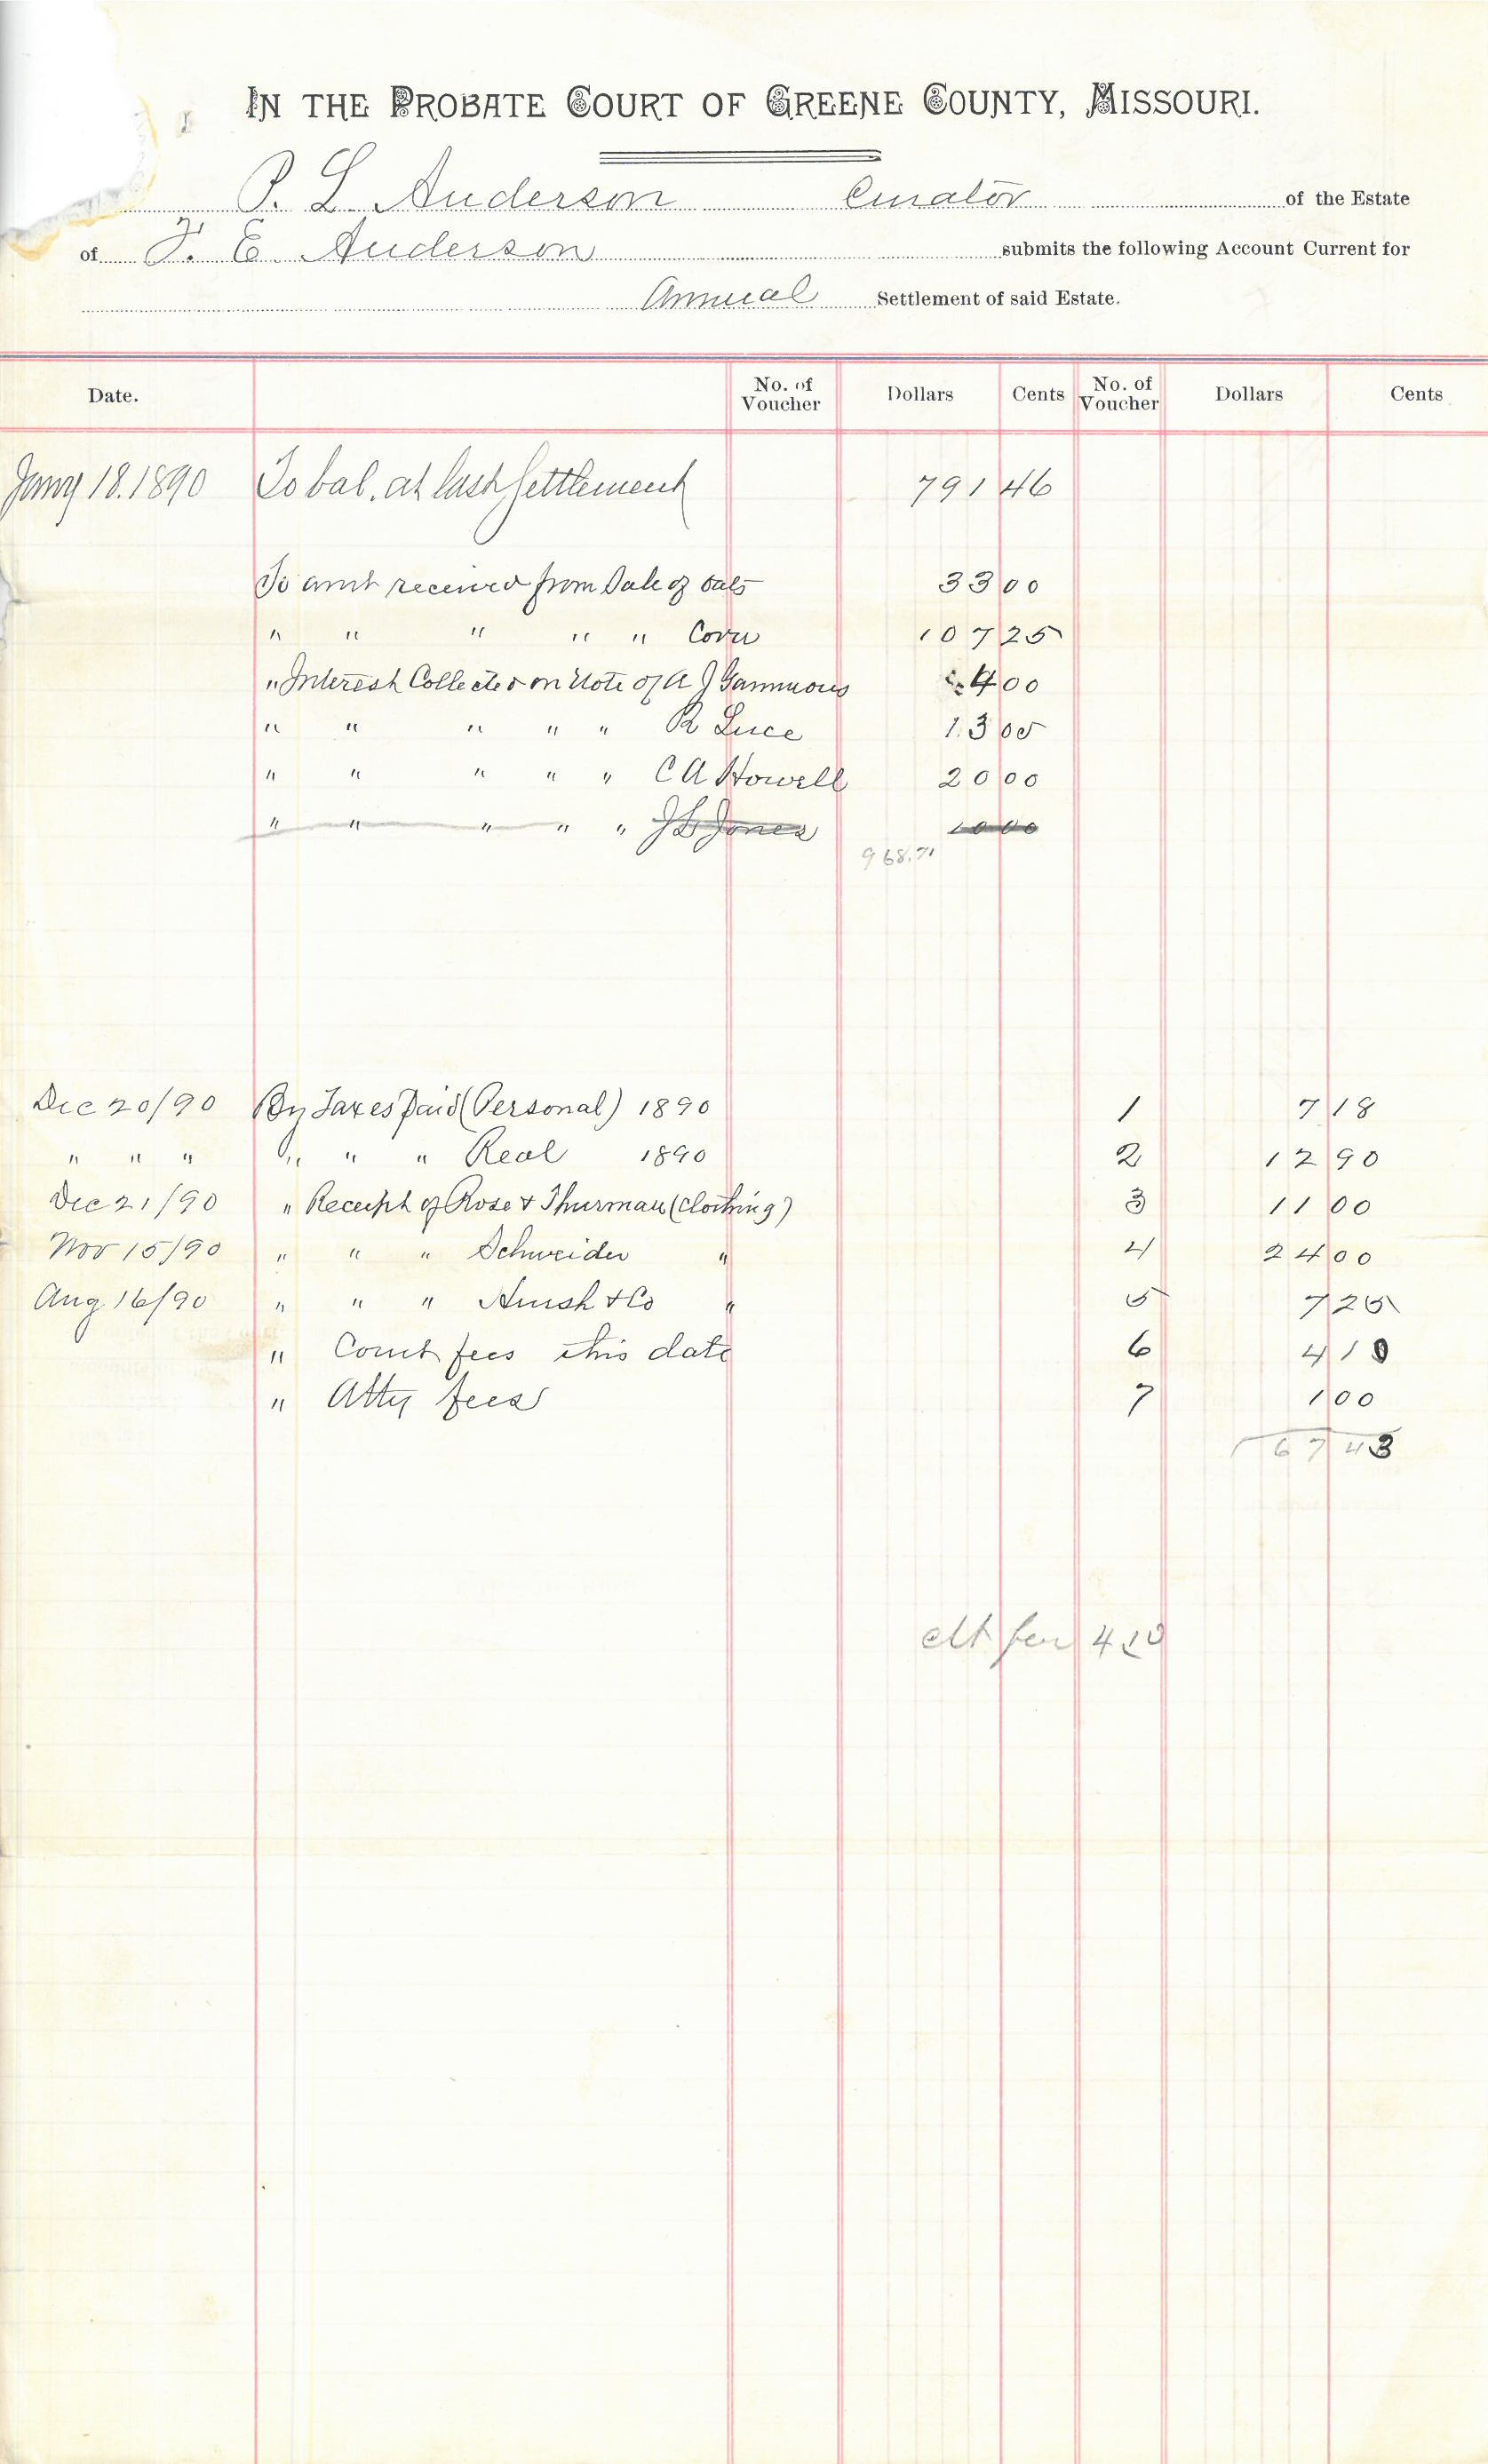 IN THE PROBATE COURT OF GREENE COUNTY, MISSOURI.
P. L. Anderson Curator of the Estate
of F. E. Anderson submits the following Account Current for
Annual Settlement of said Estate.
Date. No. of Voucher Dollars Cents No. of Voucher Dollars Cents
Jany 18. 1890 To bal. at last Settlement 791 46
To amt received from Sale of Oats 33 00
" " " " " Corn 107 25
" Interest Collected on Note of A J Gammons 4 00
" " " " " R Luce 13 00
" " " " " C A Howell 20 00
" " " " " Jones 10 00
968.71
Dec 20/90 By Taxes Paid (Personal) 1890 1 7 18
" " " " " " Real 1890 2 12 90
Dec 21/90 " Receipt of Rose & Thurman (Clothing) 3 11 00
Nov 15/90 " " " Schweider " 4 24 00
Aug 16/90 " " " & Co " 5 7 25
" Court fees this date 6 4 10
" Atty fees 7 1 00
67 43
clt fee 4 10